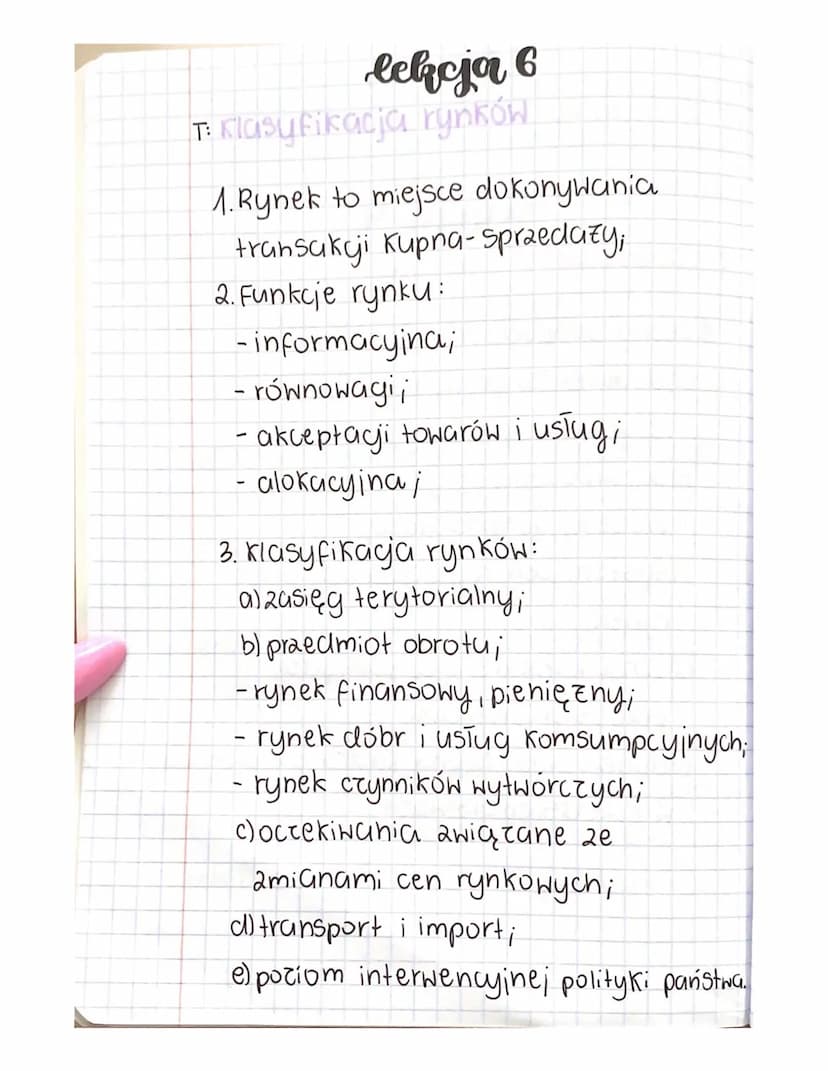 lekcja 6
T: Klasyfikacja rynków
1. Rynek to miejsce dokonywania
transakcji kupna-sprzedaży;
2. Funkcje rynku:
- informacyjna;
- równowagi;
- akceptacji towarów i usług;
- alokacyjna;
3. Klasyfikacja rynków:
a) zasięg terytorialny;
b) przedmiot obrotu;
- rynek finansowy, pieniężny;
- rynek dóbr i usług komsumpcyjnych;
- rynek czynników wytwórczych;
c) oczekiwania związane ze
zmianami cen rynkowych;
d) transport i import;
e) poziom interwencyjnej polityki państwa.